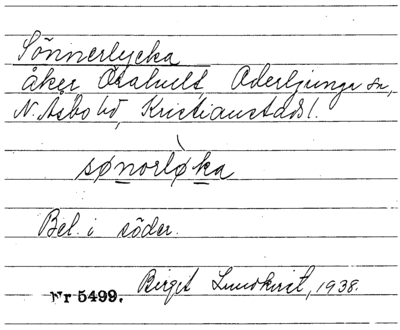 Sönnerlycka
åker Örahult, Oderljunga sn,
N. Åsbo hd, Kristianstads l.
sønorløka
Bel. i söder.
Nr 5499. Birgit Lundkvist, 1938.